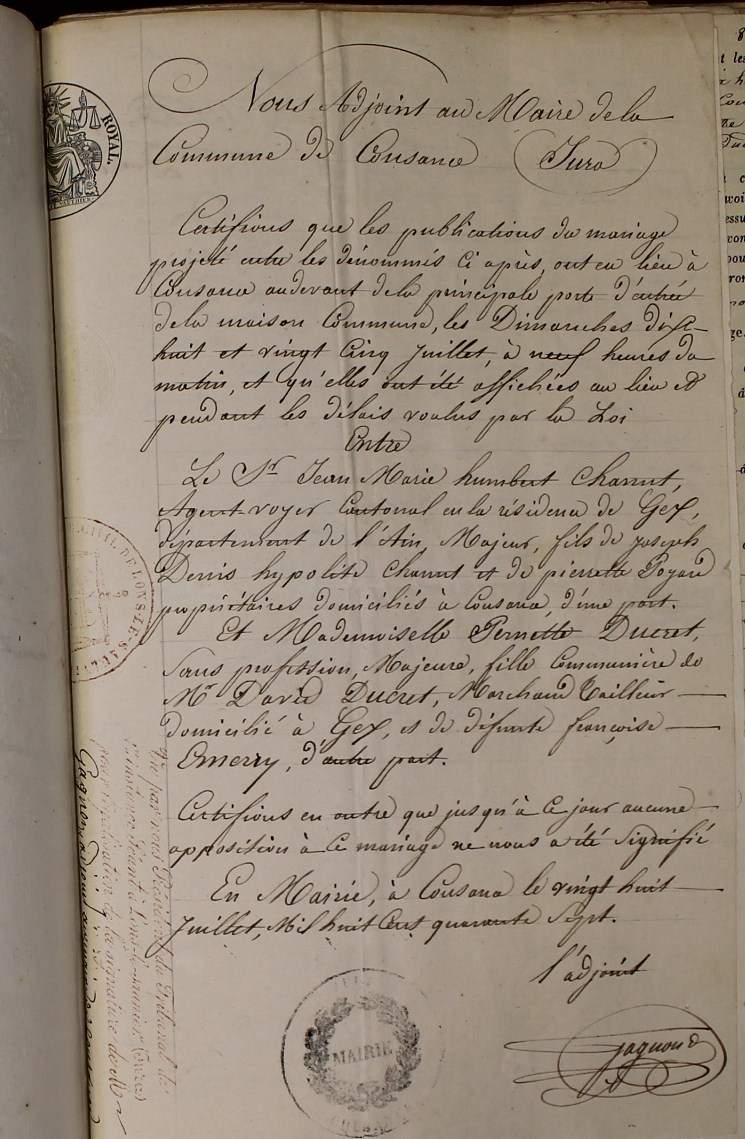 Nous Adjoint au Maire de la
Commune de Cousance (Jura)
Certifions que les publications du mariage
projeté entre les dénommés Ci après, ont eu lieu à
Cousance audevant dela principale porte d'entrée
dela maison Commune, les Dimanches dix-
huit et vingt Cinq Juillet, à neuf heures du
matin, et qu'elles ont été affichées au lieu et
pendant les délais voulus par la Loi
Entre
Le Sr. Jean Marie humbert Charnut,
Agent-voyer Cantonal en la résidence de Gex,
département de l'Ain, Majeur, fils de joseph
Denis hypolite Charnut et de pierrette Poyard
propriétaires domiciliés à Cousance, d'une part.
Et Mademoiselle Pernette Ducret,
Sans profession, Majeure, fille Communière de
Mr. David Ducret, Marchand Tailleur
domicilié à Gex, et de défunte françoise
Emerry, d'autre part.
Certifions en outre que jusqu'à Ce jour aucune
opposition à Ce mariage ne nous a été Signifié
En Mairie, à Cousance le vingt huit
Juillet, Mil huit Cent quarante Sept.
l'adjoint
gagnond
MAIRIE
ROYAL.
Vu par nous Président du Tribunal de
instance Séant à Lons-le-saunier (Jura)
légalisation de la signature de Mr